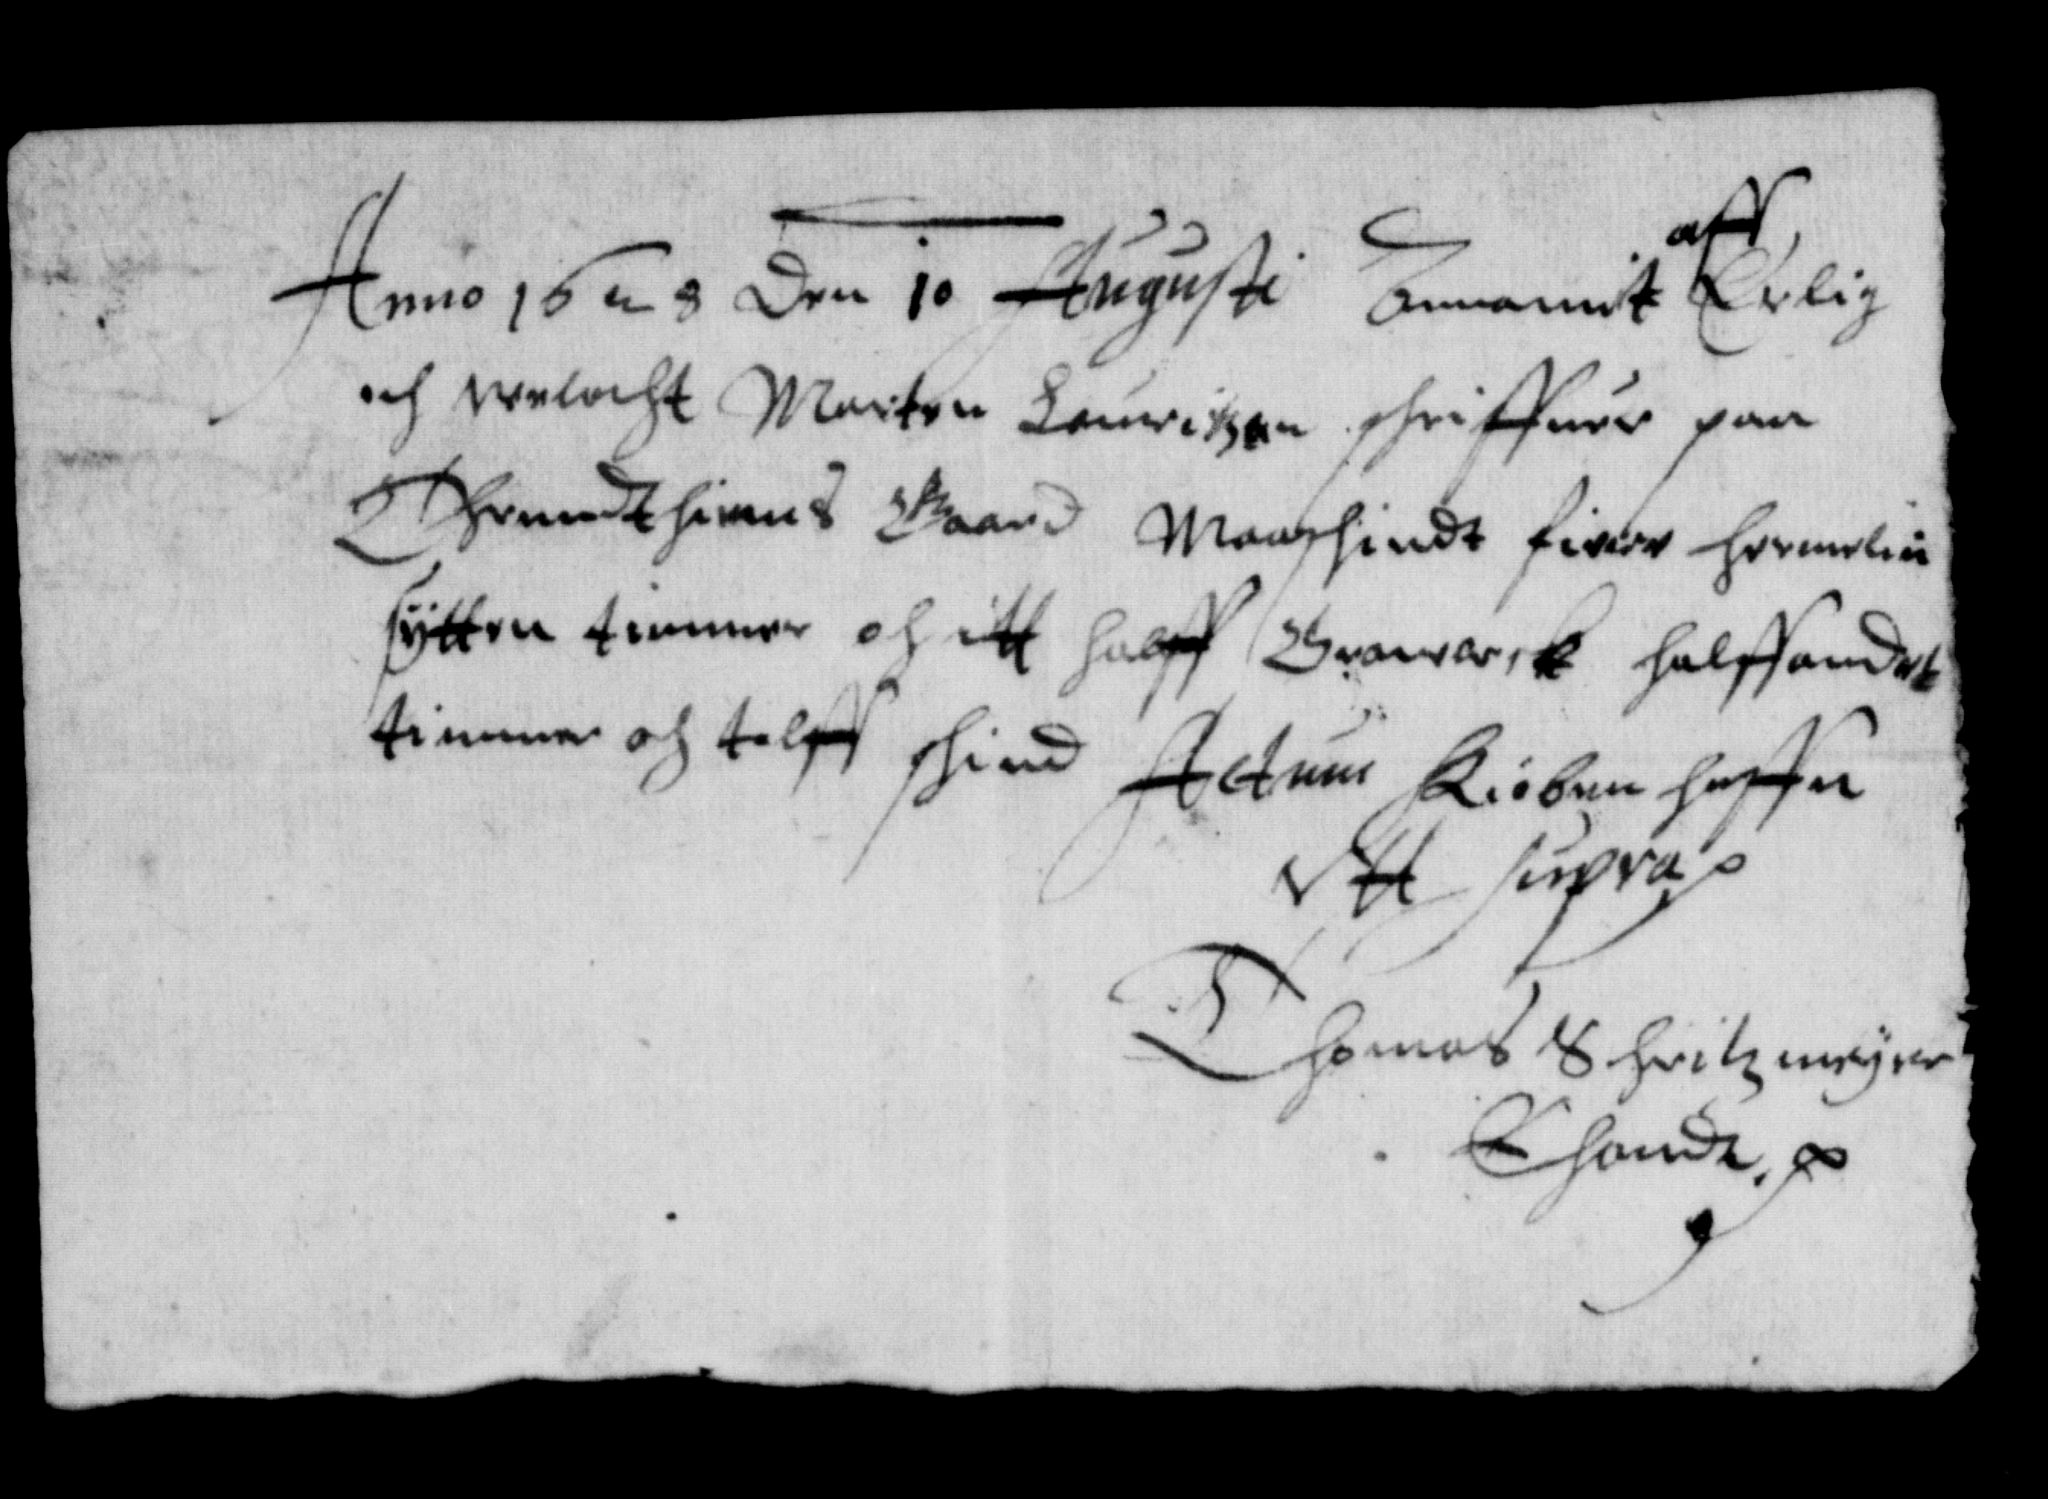 Anno 1628 Den 10 Augusti Annamit aff Erlig
och welacht Morten Lauritzen schriffuer paa
Throndthiems Gaard Maarschindt fierre hermelin
sÿtten timmer och itt halff Grawerck halffandet
timmer och tolff schind Actum Kiøbenhaffn
vtt supra
Thomas Schritzmeÿer
E handt